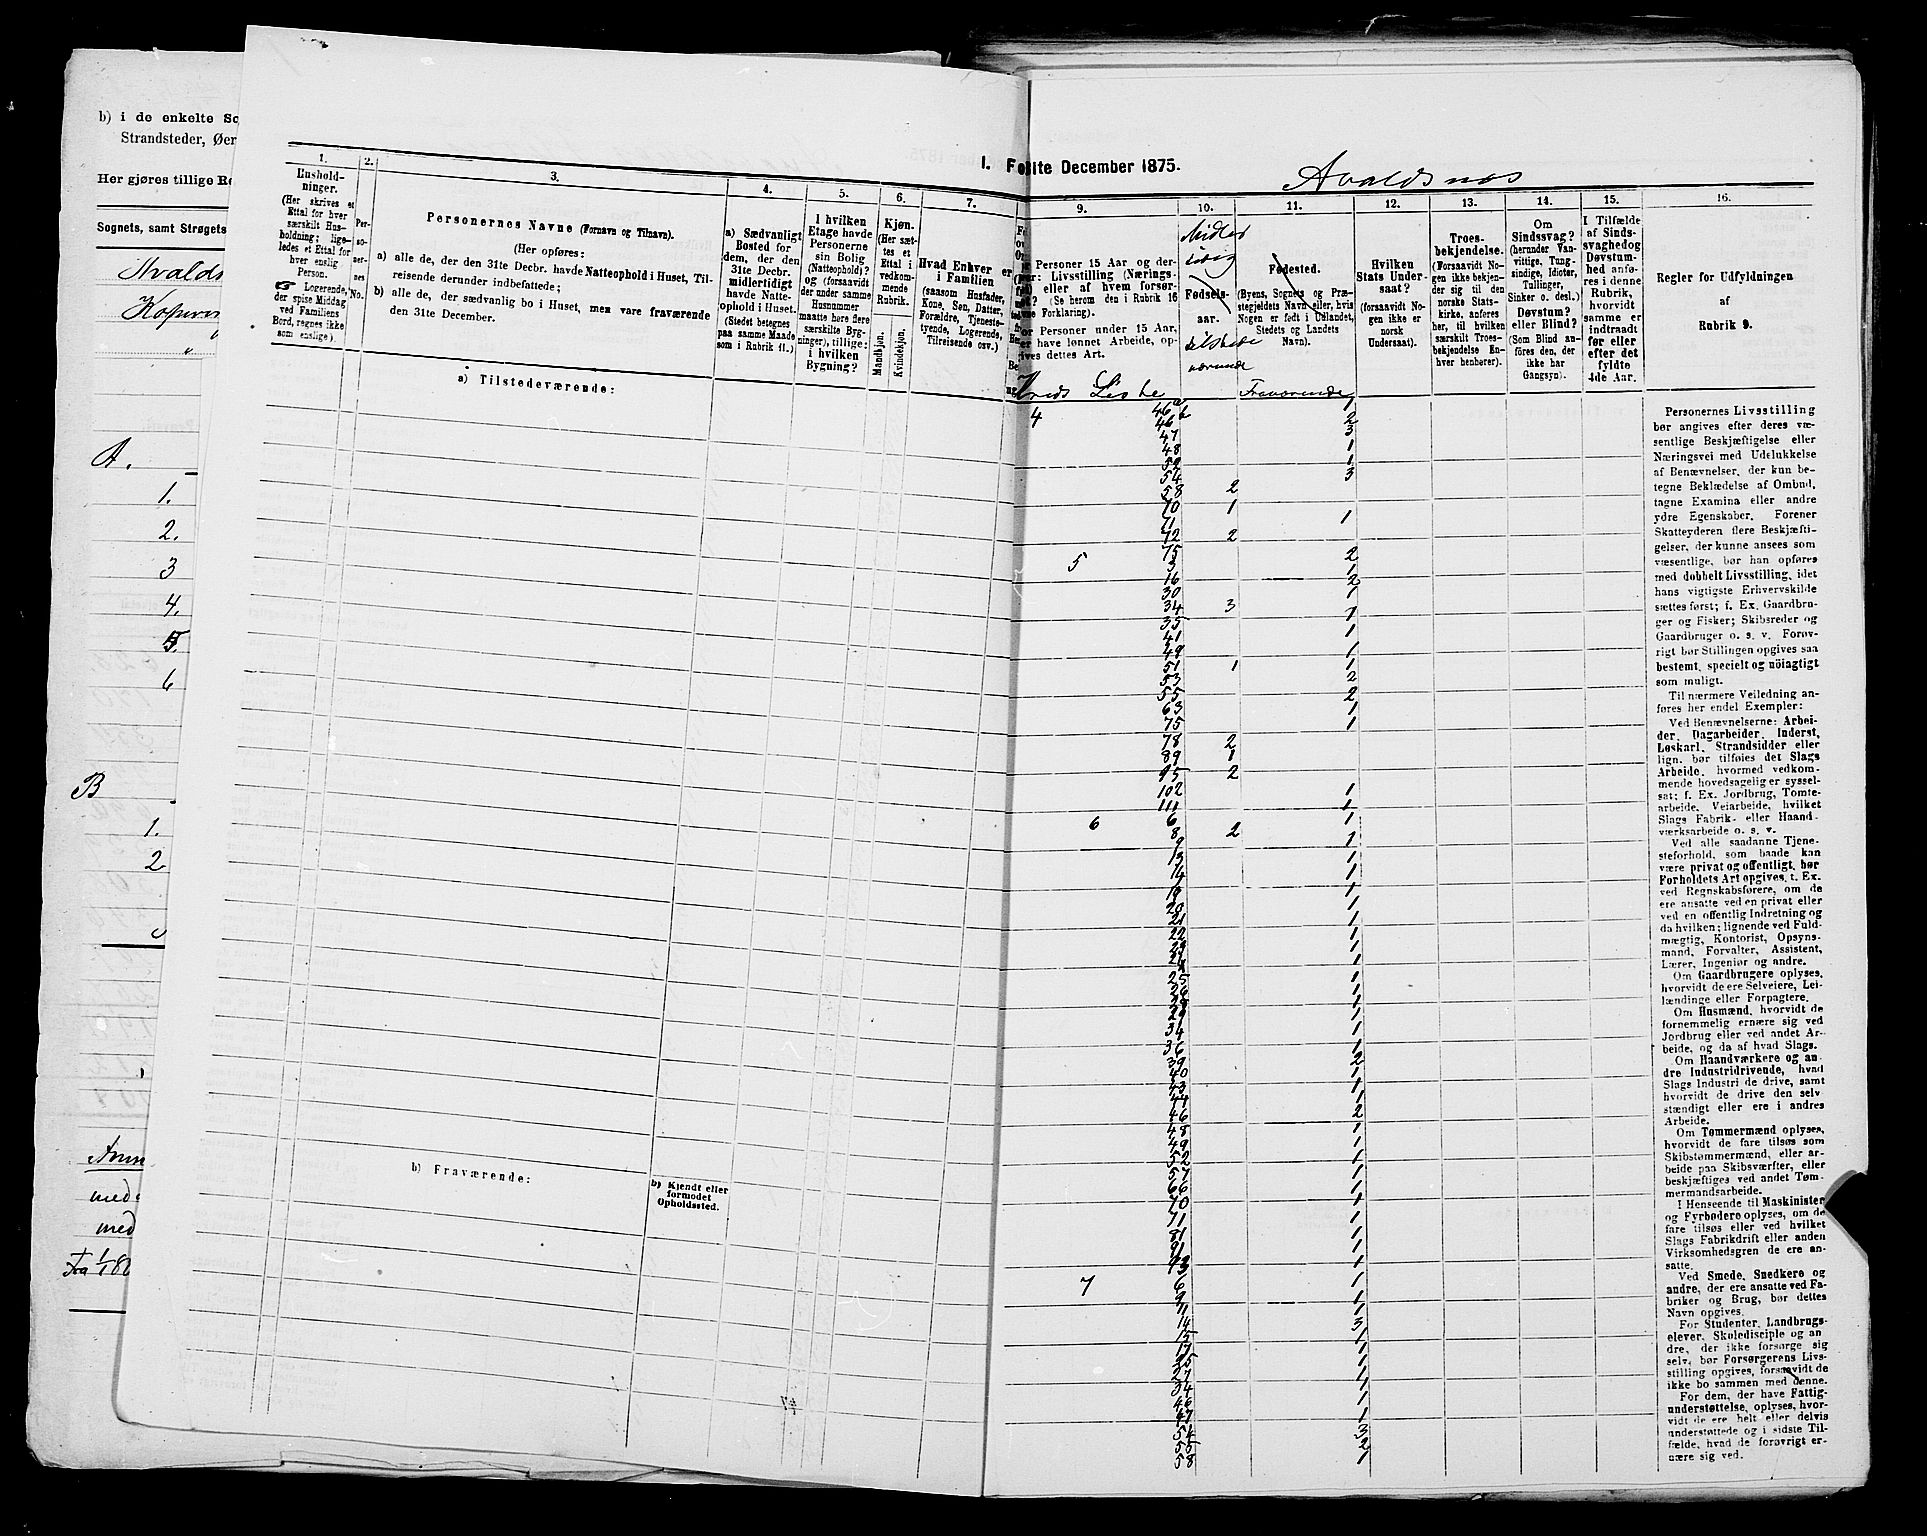 b) i de enkelte So
Strandsteder, Øer
Her gjøres tillige Re
Sognets, samt Strøgets
Avalds
Koperv
"
A.
1.
2.
3
4.
5.
6
B
1.
2
med
med
1. Fo
1. 2. 3. 4. 5. 6. 7.
Hushold-
ninger.
(Her skrives et
Ettal for hver
særskilt Hus-
holdning; lige-
ledes et Ettal for
hver enslig
Person.
Logerende,
der spise Middag
ved Familiens
Bord, regnes ikke
som enslige).
Per-
so-
ner-
nes
No.
Personernes Navne (Fornavn og Tilnavn).
(Her opføres:
a) alle de, der den 31te Decbr. havde Natteophold i Huset, Til-
reisende derunder indbefattede;
b) alle de, der sædvanlig bo i Huset, men vare fraværende
den 31te December.
a) Sædvanligt
Bosted for
dem, der den
31te Decbr.
midlertidigt
havde Natte-
ophold i Huset.
(Stedet betegnes
paa samme Maade
som i Rubrik 11.)
I hvilken
Etage havde
Personerne
sin Bolig
(Natteophold)?
og (forsaavidt
der under samme
Husnummer
maatte høre flere
særskilte Byg-
ninger), tillige:
i hvilken
Bygning?
Kjøn.
(Her sæt-
tes et
Ettal i
vedkom-
mende
Rubrik.
Mandkjøn.
Kvindekjøn.
Hvad Enhver er
i Familien
(saasom Husfader,
Kone, Søn, Datter,
Forældre, Tjeneste-
tyende, Logerende,
Tilreisende osv.)
a) Tilstedeværende:
b) Fraværende:
b) Kjendt eller
formodet
Opholdssted.
1ste December 1875.
Avaldsnes
9. 10. 11. 12. 13. 14. 15. 16.
Personer 15 Aar og der-
Livsstilling (Nærings-
eller af hvem forsør-
? (Se herom den i Rubrik 16
Forklaring).
Personer under 15 Aar,
have lønnet Arbeide, op-
gives dettes Art.
Midler
tidig
Fødsels-
aar.
tilstede
værende
Fødested.
(Byens, Sognets og Præ-
stegjeldets Navn, eller, hvis
Nogen er født i Udlandet,
Stedets og Landets
Navn).
Hvilken
Stats Under-
saat?
(forsaavidt No-
gen ikke er
norsk
Undersaat).
Troes-
bekjendelse.
(Forsaavidt No-
gen ikke bekjen-
der sig til den
norske Stats-
kirke, anføres
her, til hvilken
særskilt Troes-
bekjendelse En-
hver henhører).
Om
Sindssvag?
(herunder Van-
vittige, Tung-
sindige, Idioter,
Tullinger,
Sinker o. desl.)
Døvstum?
eller Blind?
(Som Blind an-
føres den, der
ikke har
Gangsyn).
I Tilfælde
af Sinds-
svaghed og
Døvstum-
hed anfø-
res i denne
Rubrik,
hvorvidt
samme er
indtraadt
før eller
efter det
fyldte
4de Aar.
Regler for Udfyldningen
af
Rubrik 9.
Kreds Liste Fraværende
4 46 a 1
46 b 2
47 3
48 1
52 1
54 3
58 2
70 1
71 1
72 2
75 2
5 3 1
16 2
30 1
34 3 1
35 1
41
49 1
51 1 1
53 2
55 2
63 1
75 1
78 2
89 1
95 2
102 1
111 1
6 6 1
8 2
9 1
13 1
14 1
18 1
20 1
21 1
22 1
23 1
24 1
25 1
26 1
28 1
29 1
34 1
36 1
39 2
40 1
43 1
44 1
46 2
48 1
49 1
52 1
57 1
66 1
70 1
71 1
81 1
91 1
93 1
7 6 1
9 1
11 1
14 3
15 1
17 1
25 1
27 1
34 1
46 1
47 1
54 3
55 2
58 1
Personernes Livsstilling
bør angives efter deres væ-
sentlige Beskjæftigelse eller
Næringsvei med Udelukkelse
af Benævnelser, der kun be-
tegne Beklædelse af Ombud,
tagne Examina eller andre
ydre Egenskaber. Forener
Skatteyderen flere Beskjæfti-
gelser, der kunne ansees som
væsentlige, bør han opføres
med dobbelt Livsstilling, idet
hans vigtigste Erhvervskilde
sættes først; f. Ex. Gaardbru-
ger og Fisker; Skibsreder og
Gaardbruger o. s. v. Forøv-
rigt bør Stillingen opgives saa
bestemt, specielt og nöiagtigt
som muligt.
Til nærmere Veiledning an-
føres her endel Exempler:
Ved Benævnelserne: Arbei-
der, Dagarbeider, Inderst,
Løskarl, Strandsidder eller
lign. bør tilføies det Slags
Arbeide, hvormed vedkom-
mende hovedsagelig er syssel-
sat; f. Ex. Jordbrug, Tomte-
arbeide, Veiarbeide, hvilket
Slags Fabrik- eller Haand-
værksarbeide o. s. v.
Ved alle saadanne Tjene-
steforhold, som baade kan
være privat og offentligt, bør
Forholdets Art opgives, t. Ex.
ved Regnskabsførere, om de
ere ansatte ved en privat eller
ved en offentlig Indretning og
da hvilken; lignende ved Fuld-
mægtig, Kontorist, Opsyns-
mand, Forvalter, Assistent,
Lærer, Ingeniør og andre.
Om Gaardbrugere oplyses,
hvorvidt de ere Selveiere, Lei-
lændinge eller Forpagtere.
Om Husmænd, hvorvidt de
fornemmelig ernære sig ved
Jordbrug eller ved andet Ar-
beide, og da af hvad Slags.
Om Haandværkere og an-
dre Industridrivende, hvad
Slags Industri de drive, samt
hvorvidt de drive den selv-
stændigt eller ere i andres
Arbeide.
Om Tømmermænd oplyses,
hvorvidt de fare tilsøs som
Skibstømmermænd, eller ar-
beide paa Skibsværfter, eller
beskjæftiges ved andet Tøm-
mermandsarbeide.
I Henseende til Maskinister
og Fyrbødere oplyses, om de
fare tilsøs eller ved hvilket
Slags Fabrikdrift eller anden
Virksomhedsgren de ere an-
satte.
Ved Smede, Snedkere og
andre, der ere ansatte ved Fa-
briker og Brug, bør dettes
Navn opgives.
For Studenter, Landbrugs-
elever, Skoledisciple og an-
dre, der ikke forsørge sig
selv, bør Forsørgerens Livs-
stilling opgives, forsaavidt de
ikke bo sammen med denne.
For dem, der have Fattig-
understøttelse, oplyses, hvor-
vidt de ere helt eller delvis
understøttede og i sidste Til-
fælde, hvad de forøvrigt er-
nære sig ved.